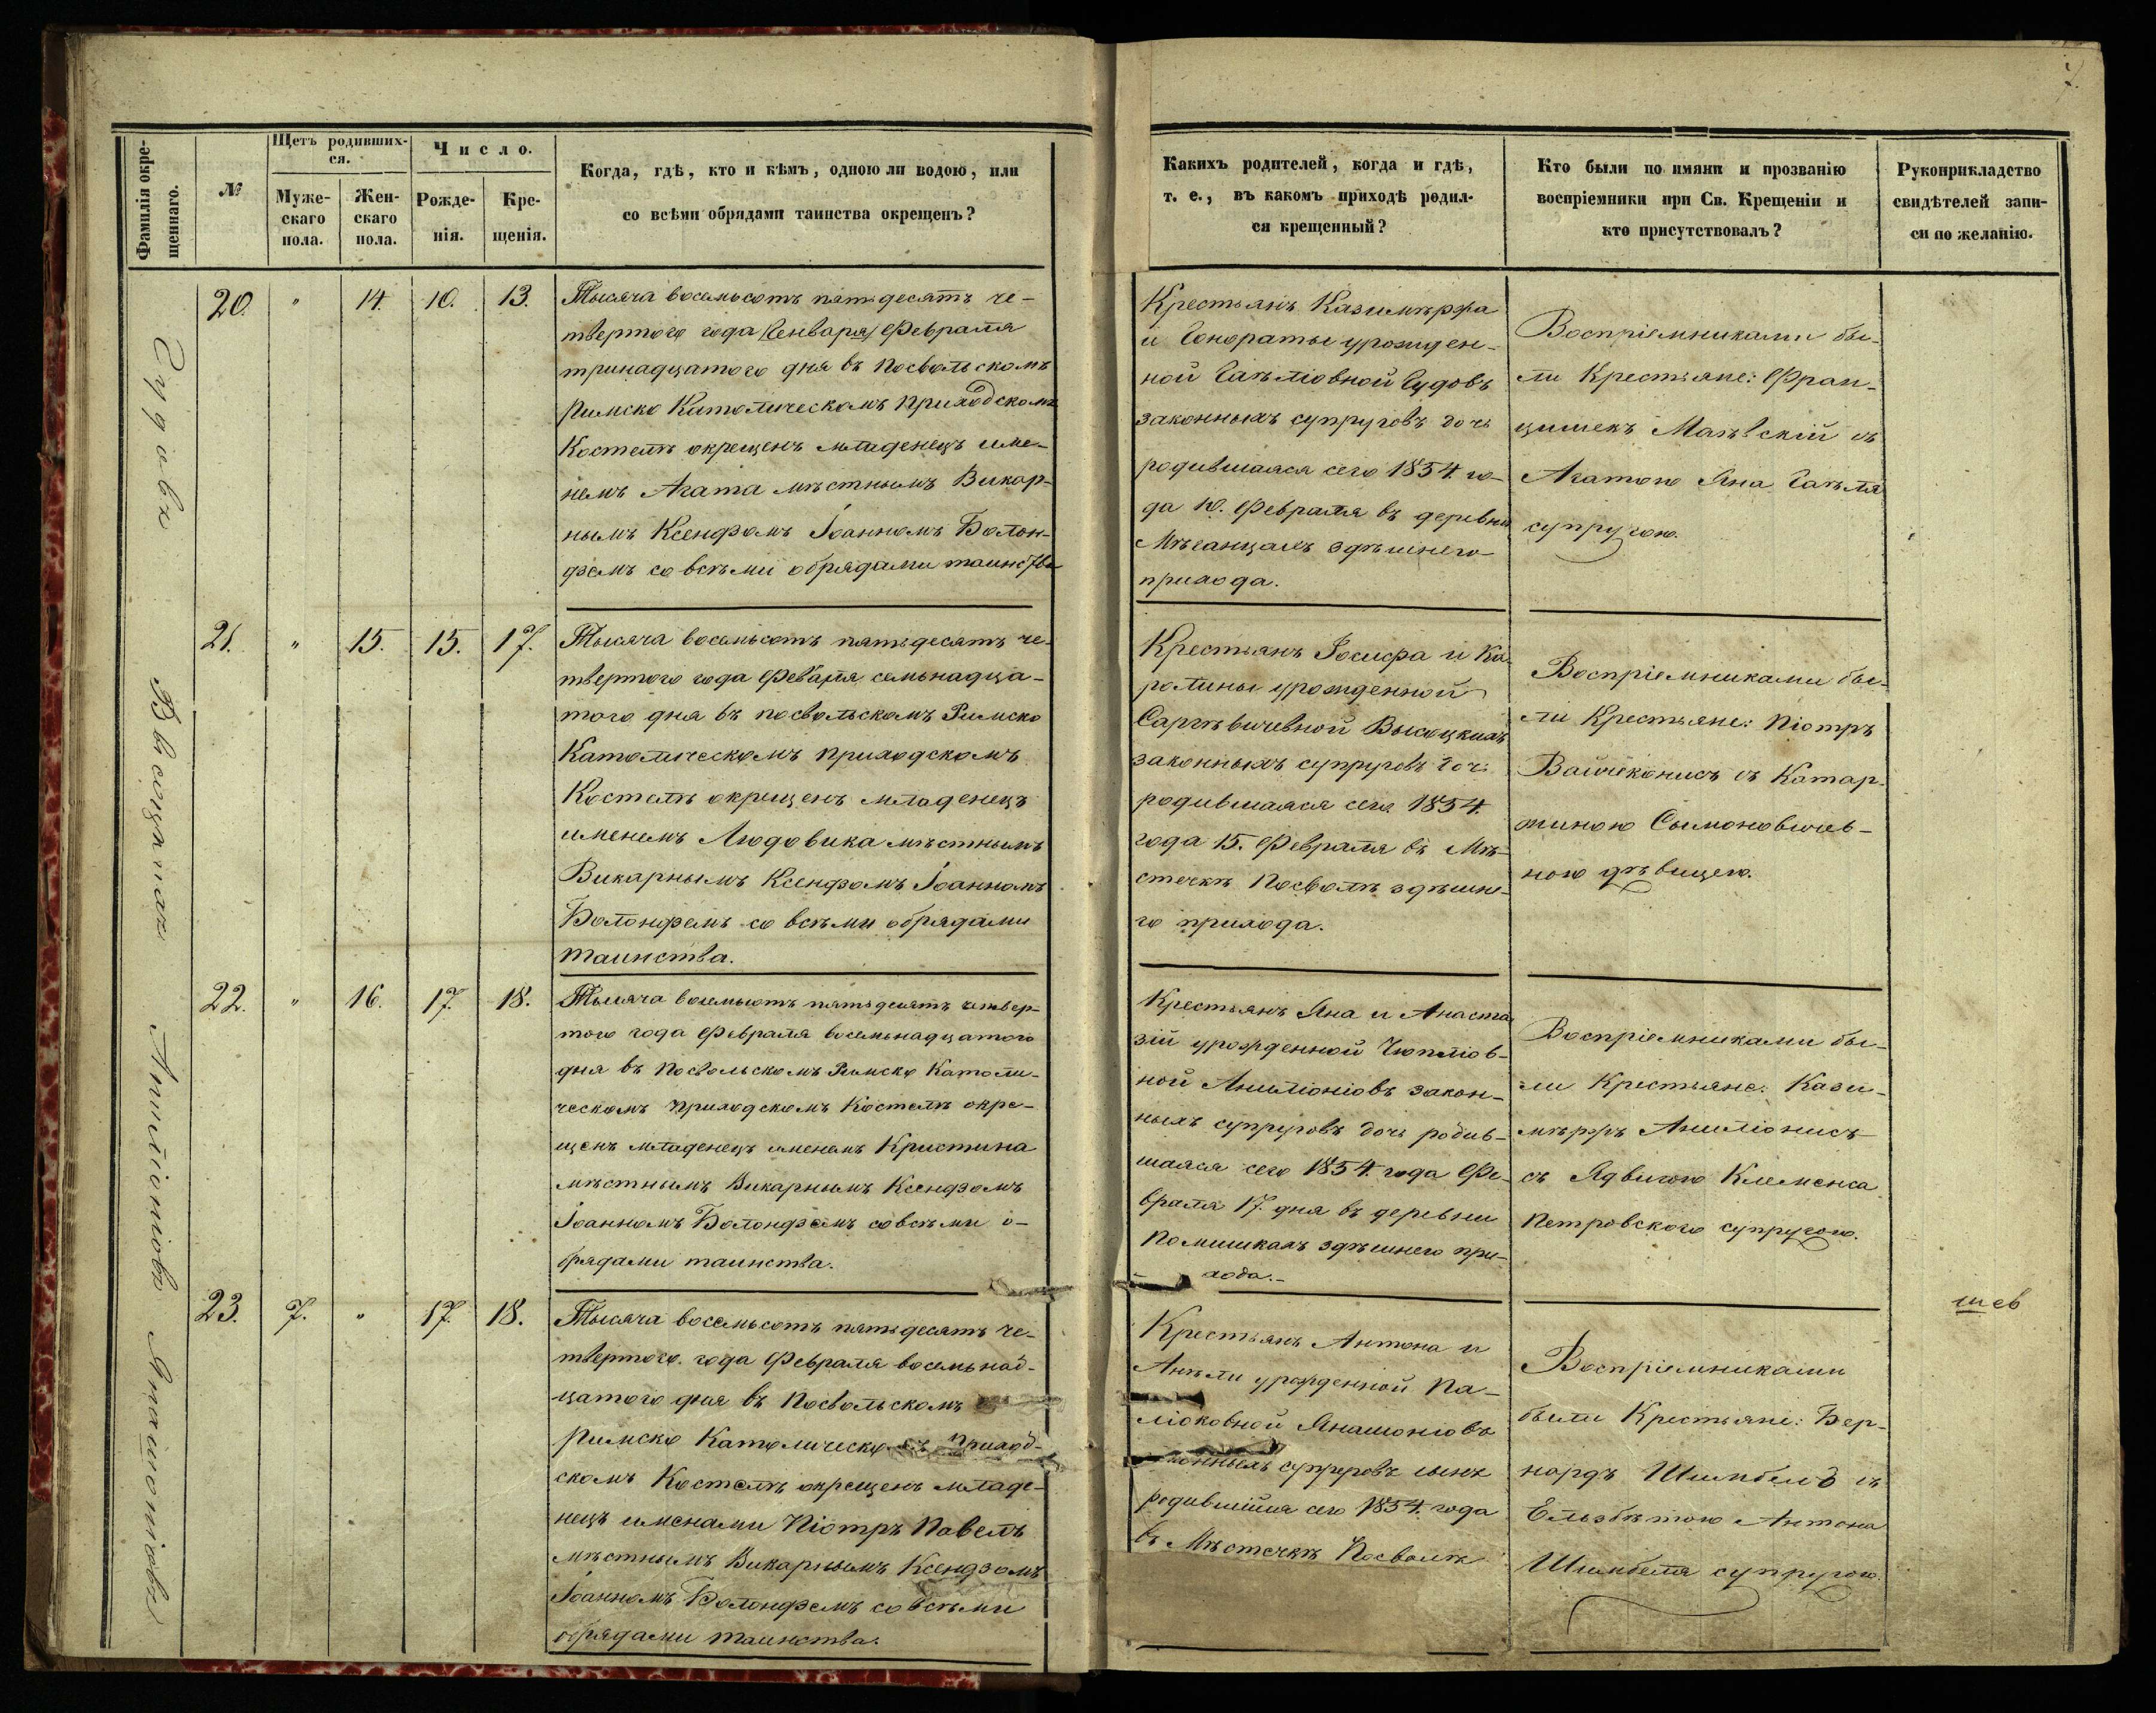 7.
Фамилія окре-
щеннаго.
№
Щетъ родивших-
ся.
Муже-
скаго
пола.
Жен-
скаго
пола.
Число.
Рожде-
нія.
Кре-
щенія.
Когда, гдѣ, кто и кѣмъ, одною ли водою, или
со всѣми обрядами таинства окрещенъ?
Какихъ родителей, когда и гдѣ,
т. е., въ какомъ приходѣ родил-
ся крещенный?
Кто были по имяни и прозванію
воспріемники при Св. Крещеніи и
кто присутствовалъ?
Рукоприкладство
свидѣтелей запи-
си по желанію.
20. " 14. 10. 13.
Тысяча восемьсотъ пятьдесятъ че-
твертого года (Генваря) Февраля
тринадцатого дня въ Посвольскомъ
Римско Католическомъ Приходскомъ
Костелѣ окрещенъ младенецъ име-
немъ Агата мѣстнымъ Викар-
нымъ Ксендзомъ Іоанномъ Болон-
дземъ со всѣми обрядами таинства
Крестьянъ Казимѣржа
и Гонораты урожден-
ной Гудовъ
законныхъ супруговъ дочь
родившаяся сего 1854. го-
да 10. Февраля въ деревни
здѣшнего
прихода.
Воспріемниками бы-
ли Крестьяне: Фран-
цишекъ съ
Агатою Яна
супругою.
Гудовъ
21. " 15. 15. 17.
Тысяча восемьсотъ пятьдесятъ че-
твертого года Февраля семьнадца-
того дня въ Посвольскомъ Римско
Католическомъ Приходскомъ
Костелѣ окрещенъ младенецъ
именемъ Людовика мѣстнымъ
Викарнымъ Ксендзомъ Іоанномъ
Болондземъ со всѣми обрядами
таинства.
Крестьянъ Іосифа и Ка-
ролины урожденной
Высоцкихъ
законныхъ супруговъ дочь
родившаяся сего 1854.
года 15. Февраля въ Мѣ-
стечкѣ Посволѣ здѣшне-
го прихода.
Воспріемниками бы-
ли Крестьяне: Піотръ
Вайчеконисъ съ Катар-
жиною Сымоновичев-
ною дѣвицею.
Высоцкихъ
22. " 16. 17. 18.
Тысяча восемьсотъ пятьдесятъ четвер-
того года Февраля восемьнадцатого
дня въ Посвольскомъ Римско Католи-
ческомъ Приходскомъ Костелѣ окре-
щенъ младенецъ именемъ Кристина
мѣстнымъ Викарнымъ Ксендзомъ
Іоанномъ Болондземъ со всѣми о-
брядами таинства.
Крестьянъ Яна и Анаста
зій урожденной
ной Анилiонiовъ закон-
ныхъ супруговъ дочь родив-
шаяся сего 1854. года Фе-
враля 17. дня въ деревни
Помишкахъ здѣшнего при-
хода.-
Воспріемниками бы-
ли Крестьяне: Кази-
мѣржъ Анилiонисъ
съ Ядвигою Клеменса
Петровского супругою.
Анилiонiовъ
23. 7. " 17. 18.
Тысяча восемьсотъ пятьдесятъ че-
твертого. года Февраля восемьнад-
цатого дня въ Посвольскомъ
Римско Католическомъ Приход-
скомъ Костелѣ окрещенъ младе-
нецъ именами Піотръ Павелъ
мѣстнымъ Викарнымъ Ксендзомъ
Іоанномъ Болондземъ со всѣми
обрядами таинства.
Крестьянъ Антона и
Анѣли урожденной Па-
лiоковной Янашонiовъ
законныхъ супруговъ сынъ
родившійся сего 1854. года
въ Мѣстечкѣ Посволѣ
Воспріемниками
были Крестьяне: Бер-
нардъ Шимбелъ съ
Ельзбѣтою Антона
Шимбеля супругою.
Янашонiовъ